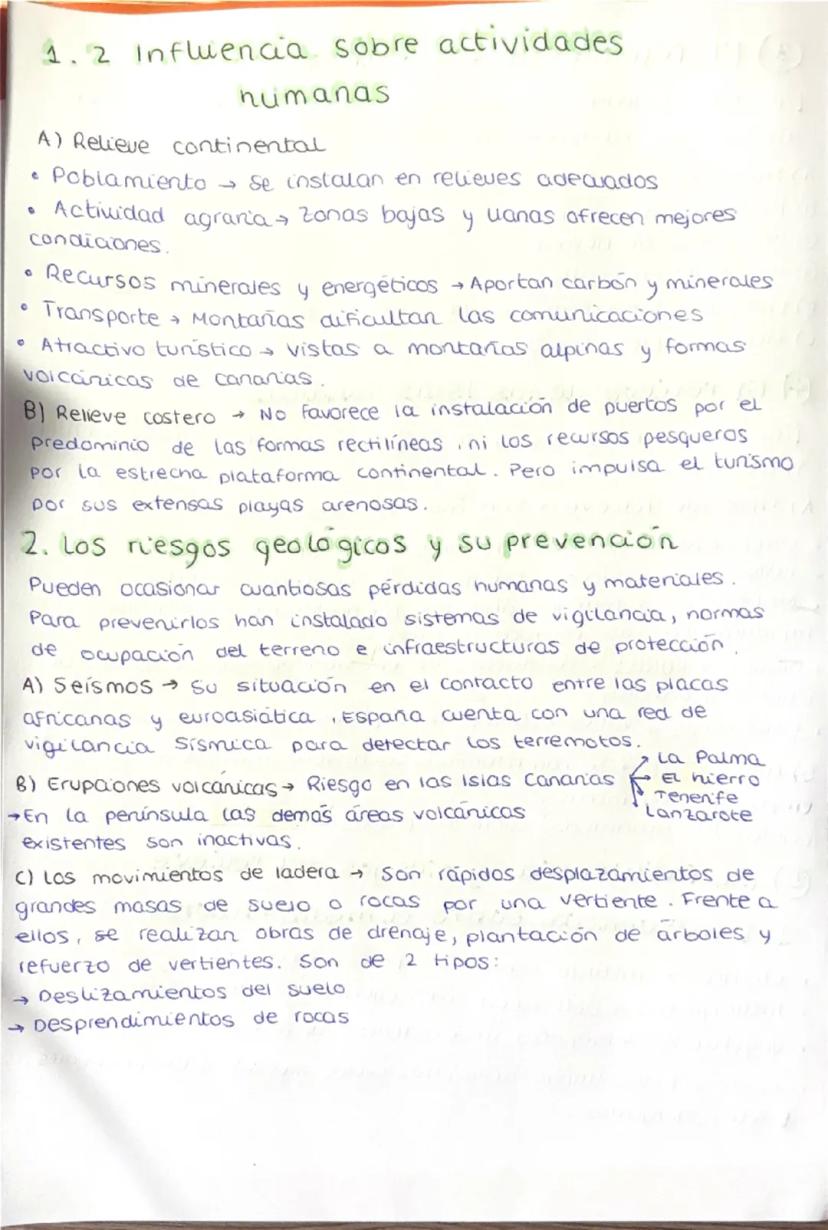 1.2 Influencia sobre actividades
humanas
A) Relieve continental
• Poblamiento → Se instalan en relieves adecuados
• Actividad agraria → Zonas bajas y llanas ofrecen mejores
condiciones.
• Recursos minerales y energéticos → Aportan carbón y minerales
• Transporte → Montañas dificultan las comunicaciones
• Atractivo turístico → Vistas a montañas alpinas y formas
volcánicas de Canarias.
B) Relieve costero → No favorece la instalación de puertos por el
predominio de las formas rectilíneas, ni los recursos pesqueros
por la estrecha plataforma continental. Pero impulsa el turismo
por sus extensas playas arenosas.
2. Los riesgos geológicos y su prevención
Pueden ocasionar cuantiosas pérdidas humanas y materiales.
Para prevenirlos han instalado sistemas de vigilancia, normas
de ocupación del terreno e infraestructuras de protección.
A) Seísmos → Su situación en el contacto entre las placas
africanas y euroasiática, España cuenta con una red de
vigilancia sísmica para detectar los terremotos.
B) Erupciones volcánicas → Riesgo en las Islas Canarias
La Palma
El Hierro
Tenerife
Lanzarote
→ En la península las demás áreas volcánicas
existentes son inactivas.
C) Los movimientos de ladera → Son rápidos desplazamientos de
grandes masas de suelo o rocas por una vertiente. Frente a
ellos, se realizan obras de drenaje, plantación de árboles y
refuerzo de vertientes. Son de 2 tipos:
→ Deslizamientos del suelo
→ Desprendimientos de rocas